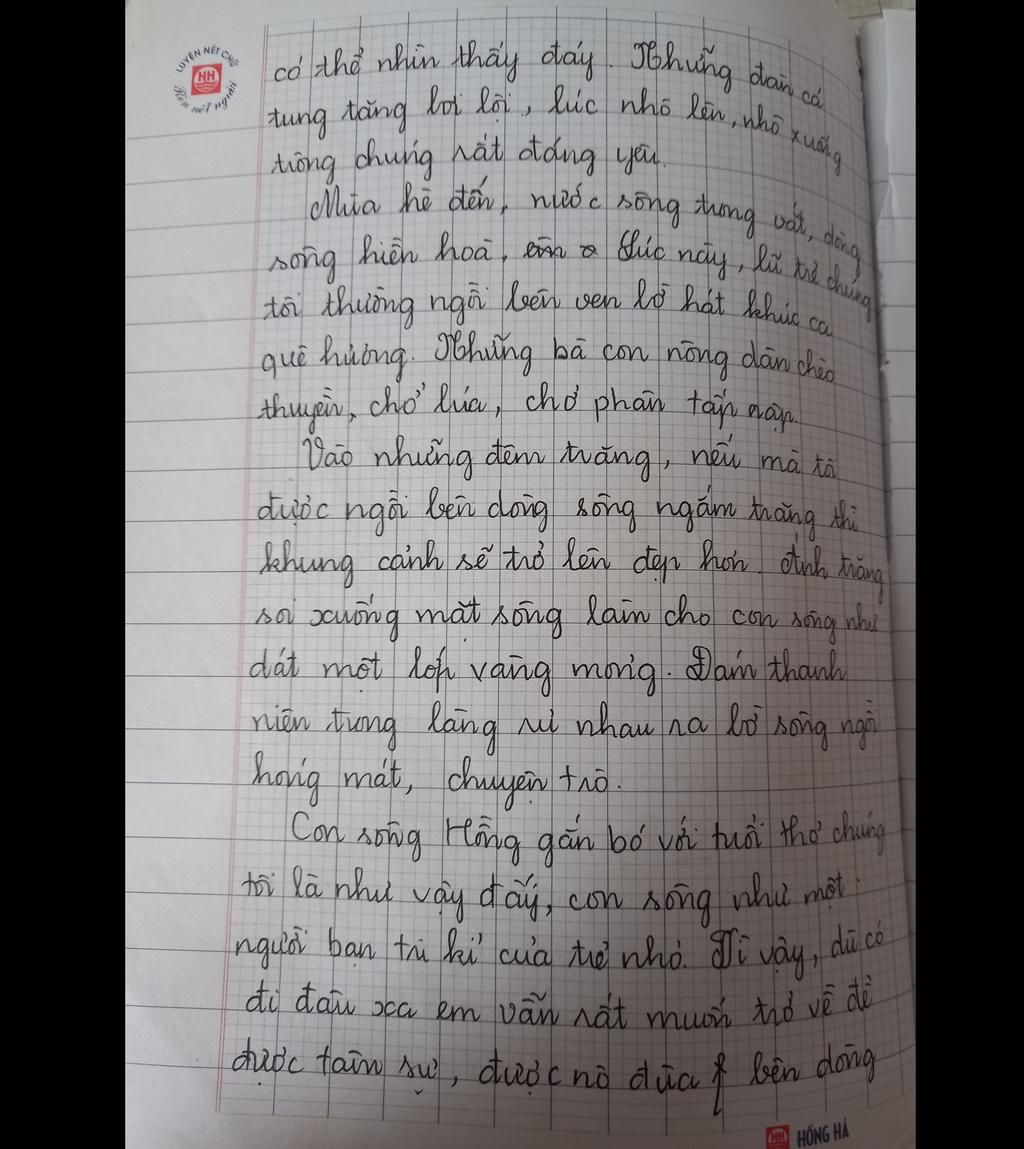 LUYỆN NÉT CHỮ
HH
Rèn nết người
có thể nhìn thấy đáy. Những đàn cá
tung tăng bơi lội, lúc nhô lên, nhô xuống
trông chúng rất đáng yêu.
Mùa hè đến, nước sông trong vắt, dòng
sông hiền hoà, lúc này, lũ trẻ chúng
tôi thường ngồi bên ven bờ hát khúc ca
quê hương. Những bà con nông dân chèo
thuyền, chở lúa, chở phân tấp nập.
Vào những đêm trăng, nếu mà tôi
được ngồi bên dòng sông ngắm trăng thì
khung cảnh sẽ trở lên đẹp hơn. Ánh trăng
soi xuống mặt sông làm cho con sông như
dát một lớp vàng mỏng. Đám thanh
niên trong làng rủ nhau ra bờ sông ngồi
hóng mát, chuyện trò.
Con sông Hồng gắn bó với tuổi thơ chúng
tôi là như vậy đấy, con sông như một
người bạn tri kỉ của trẻ nhỏ. Vì vậy, dù có
đi đâu xa em vẫn rất muốn trở về để
được tâm sự, được nô đùa bên dòng
HH HỒNG HÀ